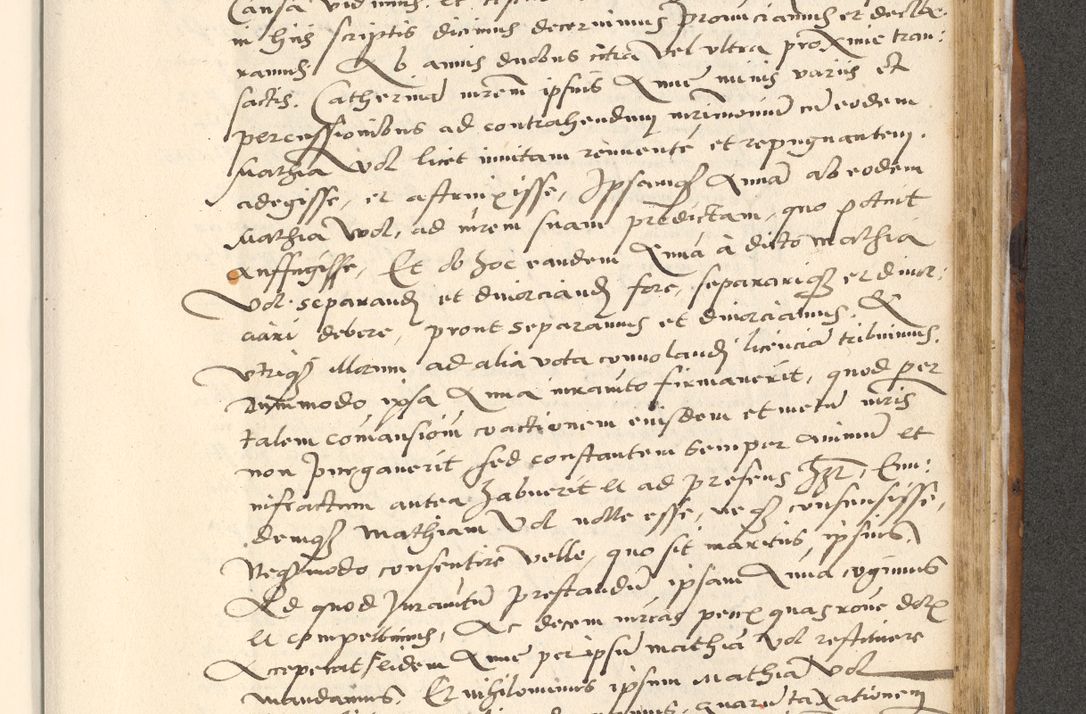 in hijs scriptis dicimus decernimus pronunciamus et decla-
ramus. Ab annis duobus citra vel ultra proxime tran-
sactis. Catherina mrem ipsius Anne minis variis et
percussionibus ad contrahendum mrimonium cu eodem
Mathia Vol licet invitam rennente et repugnantem.
adegisse, et astrinxisse, Ipsamq Anna ab eodem
Mathia Vol, ad mrem suam predictam, quo potuit
auffugisse, Et ob hoc eandem Anna à dicto Mathia
Vol separand et divorciand fore, separariq et divor-
ciari debere, prout separamus et divorciamus. Et
utriq illorum ad alia vota convolandi licencia tribuimus.
Dummodo ipsa Anna iuramto firmaverit, quod per
talem comansiom coactionem eiusdem et metu mris
non purgaverit sed constantem semper animu et
infractum antea habuerit et ad presens hzt, Eun-
demq Mathiam Vol nolle esse, neq consensisse,
Neq modo consentire velle, quo sit maritus ipsius.
Ad quod Iuramtu prestandu ipsam Anna cogimus
et compellimus, Ac decem mrcas pecux quas roe dotx
Acceperat eidem Anne per ipsu Mathia Vol restituere
mandamus, Et nihilominus ipsum Mathia Vol
quaru taxationem